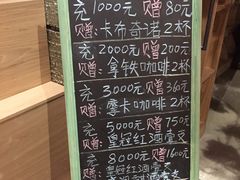 充1000元赠80元
赠:卡布奇诺2杯
充2000元赠200元
赠:拿铁咖啡2杯
充3000元赠360元
赠:摩卡咖啡2杯
充5000元赠750元
赠:皇冠红酒壹支
充8000元赠1600元